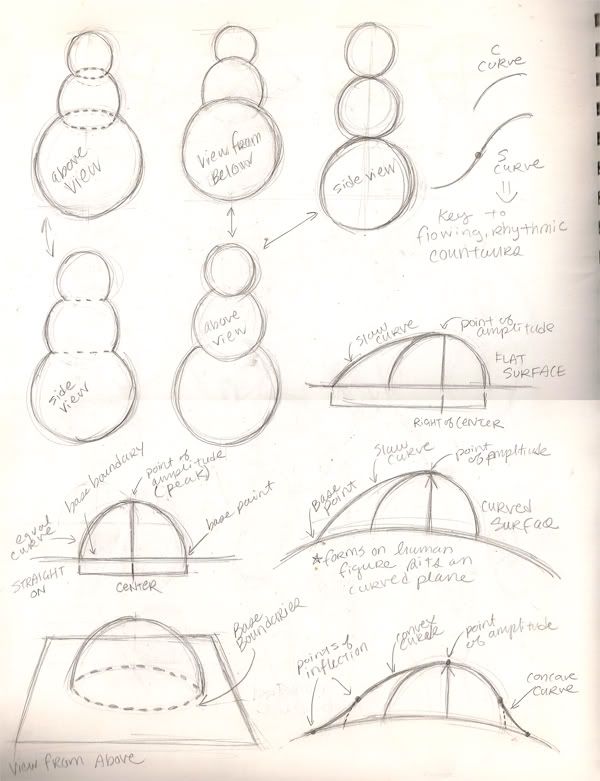 above
view
view from
Below
side view
C
curve
S
curve
key to
flowing, rhythmic
countours
side
view
above
view
slow curve
point of
amplitude
FLAT
SURFACE
RIGHT OF CENTER
base boundary
point of
amplitude
(peak)
base point
equal
curve
STRAIGHT
ON
CENTER
Base
Point
slow
curve
point
of amplitude
CURVED
SURFACE
*forms on human
figure sits on
curved plane
Base
Boundaries
View from Above
points of
inflection
convex
curve
point
of amplitude
concave
curve